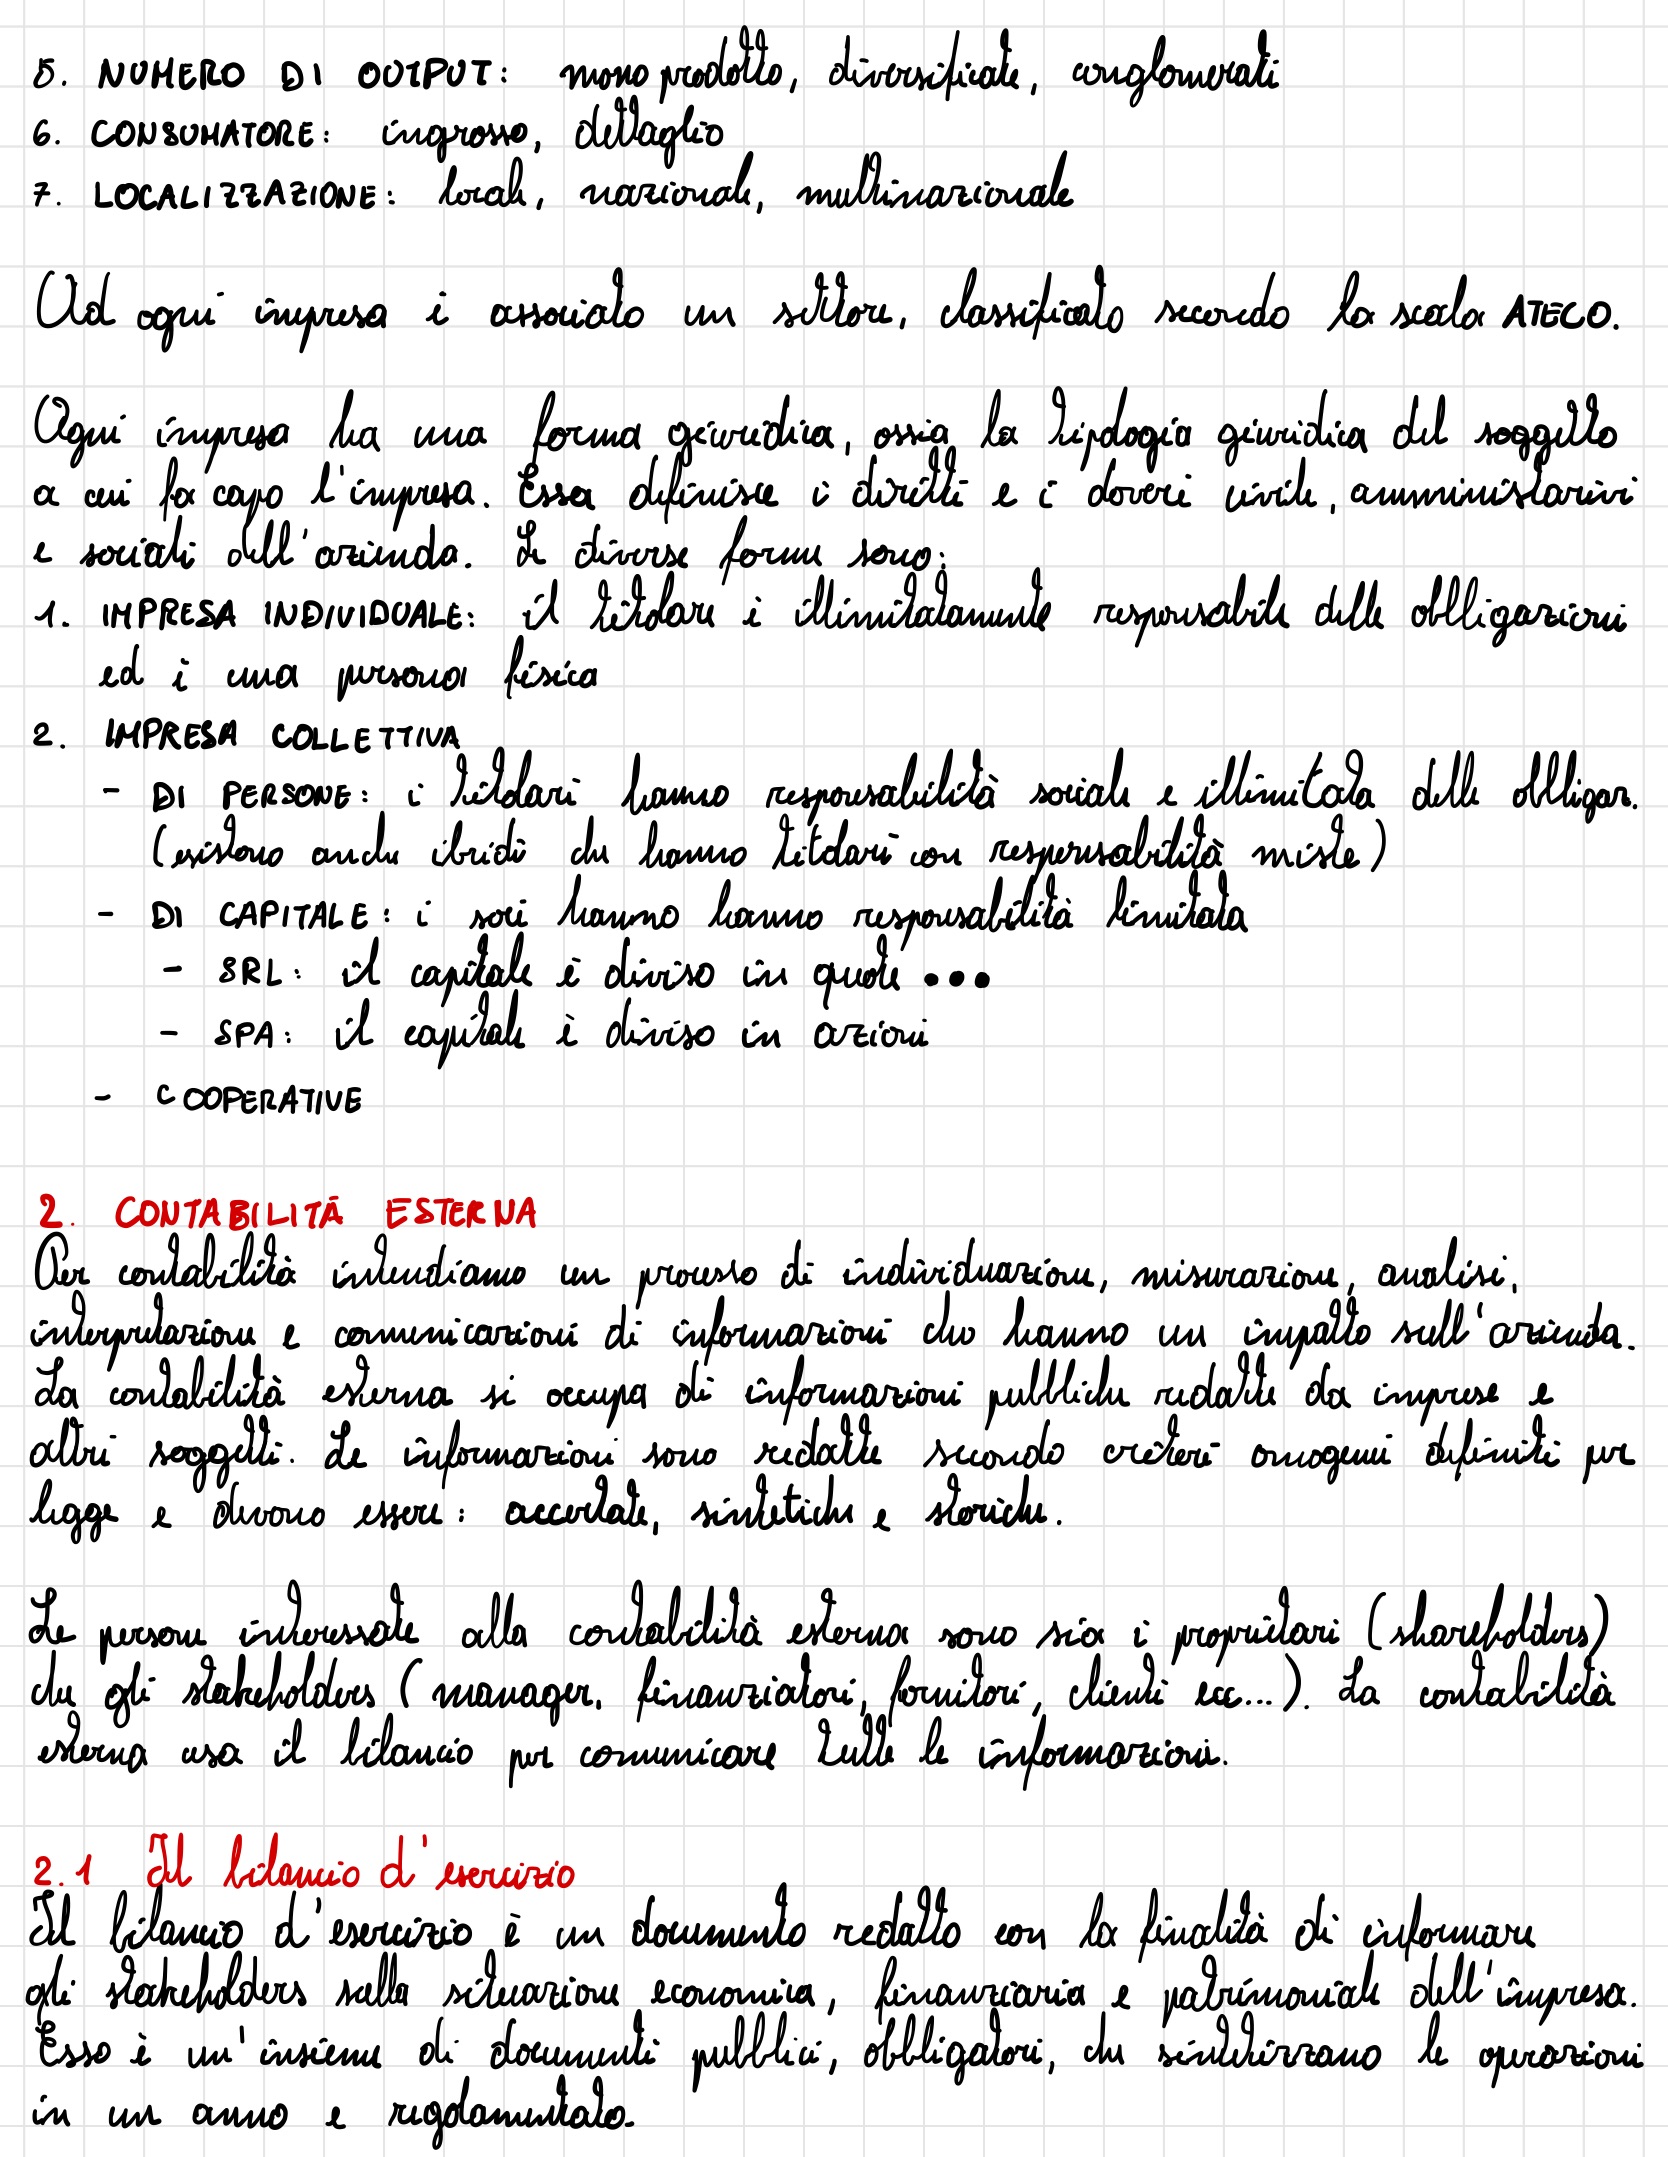 5. NUMERO DI OUTPUT: mono prodotto, diversificate, conglomerati
6. CONSUMATORE: ingrosso, dettaglio
7. LOCALIZZAZIONE: locale, nazionale, multinazionale
Ad ogni impresa è associato un settore, classificato secondo la scala ATECO.
Ogni impresa ha una forma giuridica, ossia la tipologia giuridica del soggetto
a cui fa capo l'impresa. Essa definisce i diritti e i doveri civile, amministarivi
e sociali dell'azienda. Le diverse forme sono:
1. IMPRESA INDIVIDUALE: il titolare è illimitatamente responsabile delle obbligazioni
ed è una persona fisica
2. IMPRESA COLLETTIVA
- DI PERSONE: i titolari hanno responsabilità sociale e illimitata delle obbligaz.
(esistono anche ibridi che hanno titolari con responsabilità miste)
- DI CAPITALE: i soci hanno hanno responsabilità limitata
- SRL: il capitale è diviso in quote •••
- SPA: il capitale è diviso in azioni
- COOPERATIVE
2. CONTABILITÀ ESTERNA
Per contabilità intendiamo un processo di individuazione, misurazione, analisi,
interpretazione e comunicazioni di informazioni che hanno un impatto sull'azienda.
La contabilità esterna si occupa di informazioni pubbliche redatte da imprese e
altri soggetti. Le informazioni sono redatte secondo criteri omogenei definiti per
legge e devono essere: accertate, sintetiche e storiche.
Le persone interessate alla contabilità esterna sono sia i proprietari (shareholders)
che gli stakeholders (manager, finanziatori, fornitori, clienti ecc...). La contabilità
esterna usa il bilancio per comunicare tutte le informazioni.
2.1 Il bilancio d'esercizio
Il bilancio d'esercizio è un documento redatto con la finalità di informare
gli stakeholders sulla situazione economica, finanziaria e patrimoniale dell'impresa.
Esso è un'insieme di documenti pubblici, obbligatori, che sintetizzano le operazioni
in un anno e regolamentato.